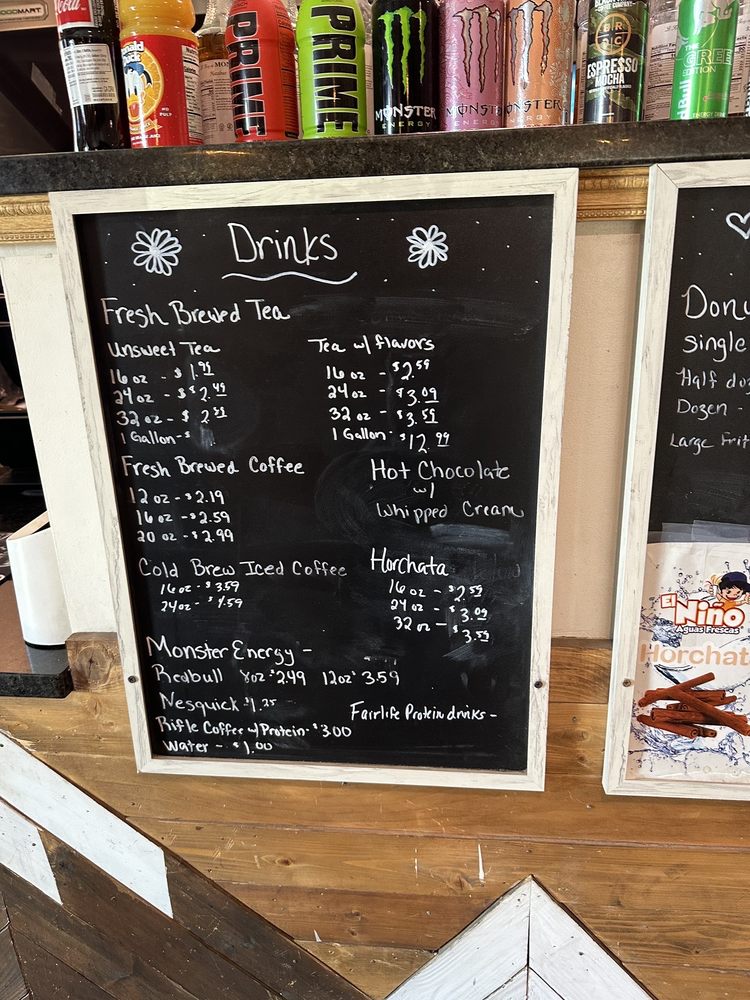 Cola
Donald Duck
NO PULP
PRIME
PRIME
MONSTER ENERGY
MONSTER ENERGY
MONSTER ENERGY
ESPRESSO MOCHA
THE GREEN EDITION
Drinks
Fresh Brewed Tea
Unsweet Tea
16 oz - $1.99
24 oz - $2.49
32 oz - $2.59
1 Gallon - $
Tea w/ flavors
16 oz - $2.59
24 oz - $3.09
32 oz - $3.59
1 Gallon - $12.99
Fresh Brewed Coffee
12 oz - $2.19
16 oz - $2.59
20 oz - $2.99
Hot Chocolate
w/
Whipped Cream
Cold Brew Iced Coffee
16 oz - $3.59
24 oz - $4.59
Horchata
16 oz - $2.59
24 oz - $3.09
32 oz - $3.59
Monster Energy -
Redbull 8oz $2.49 12oz $3.59
Nesquick $1.25
Fairlife Protein drinks -
Rifle Coffee w/ Protein - $3.00
Water - $1.00
Donu
Single
Half do
Dozen -
Large Frit
El Niño
Aguas Frescas
Horchat